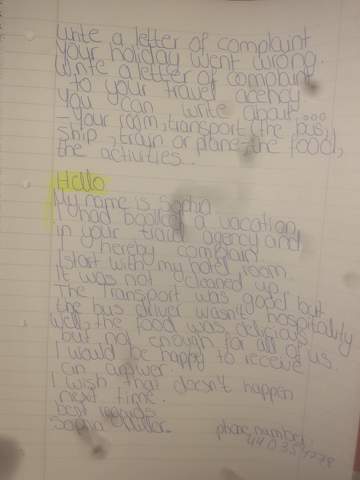 write a letter of complaint
your holiday went wrong.
write a letter of complaint
to your travel agency
you can write about...
- your room, transport (the bus,
ship, train or plane the food,
the activities..
Hello
My name is Sophia
I had booked a vacation
in your travel agency and
I hereby complain
I start with my hotel room.
It was not cleaned up.
The Transport was good but
the bus driver wasn't hospitality
Well, the food was delicious
but not enough for all of us.
I would be happy to receive
an answer
I wish that doesn't happen
next time.
best regards
Sophia
phone number: